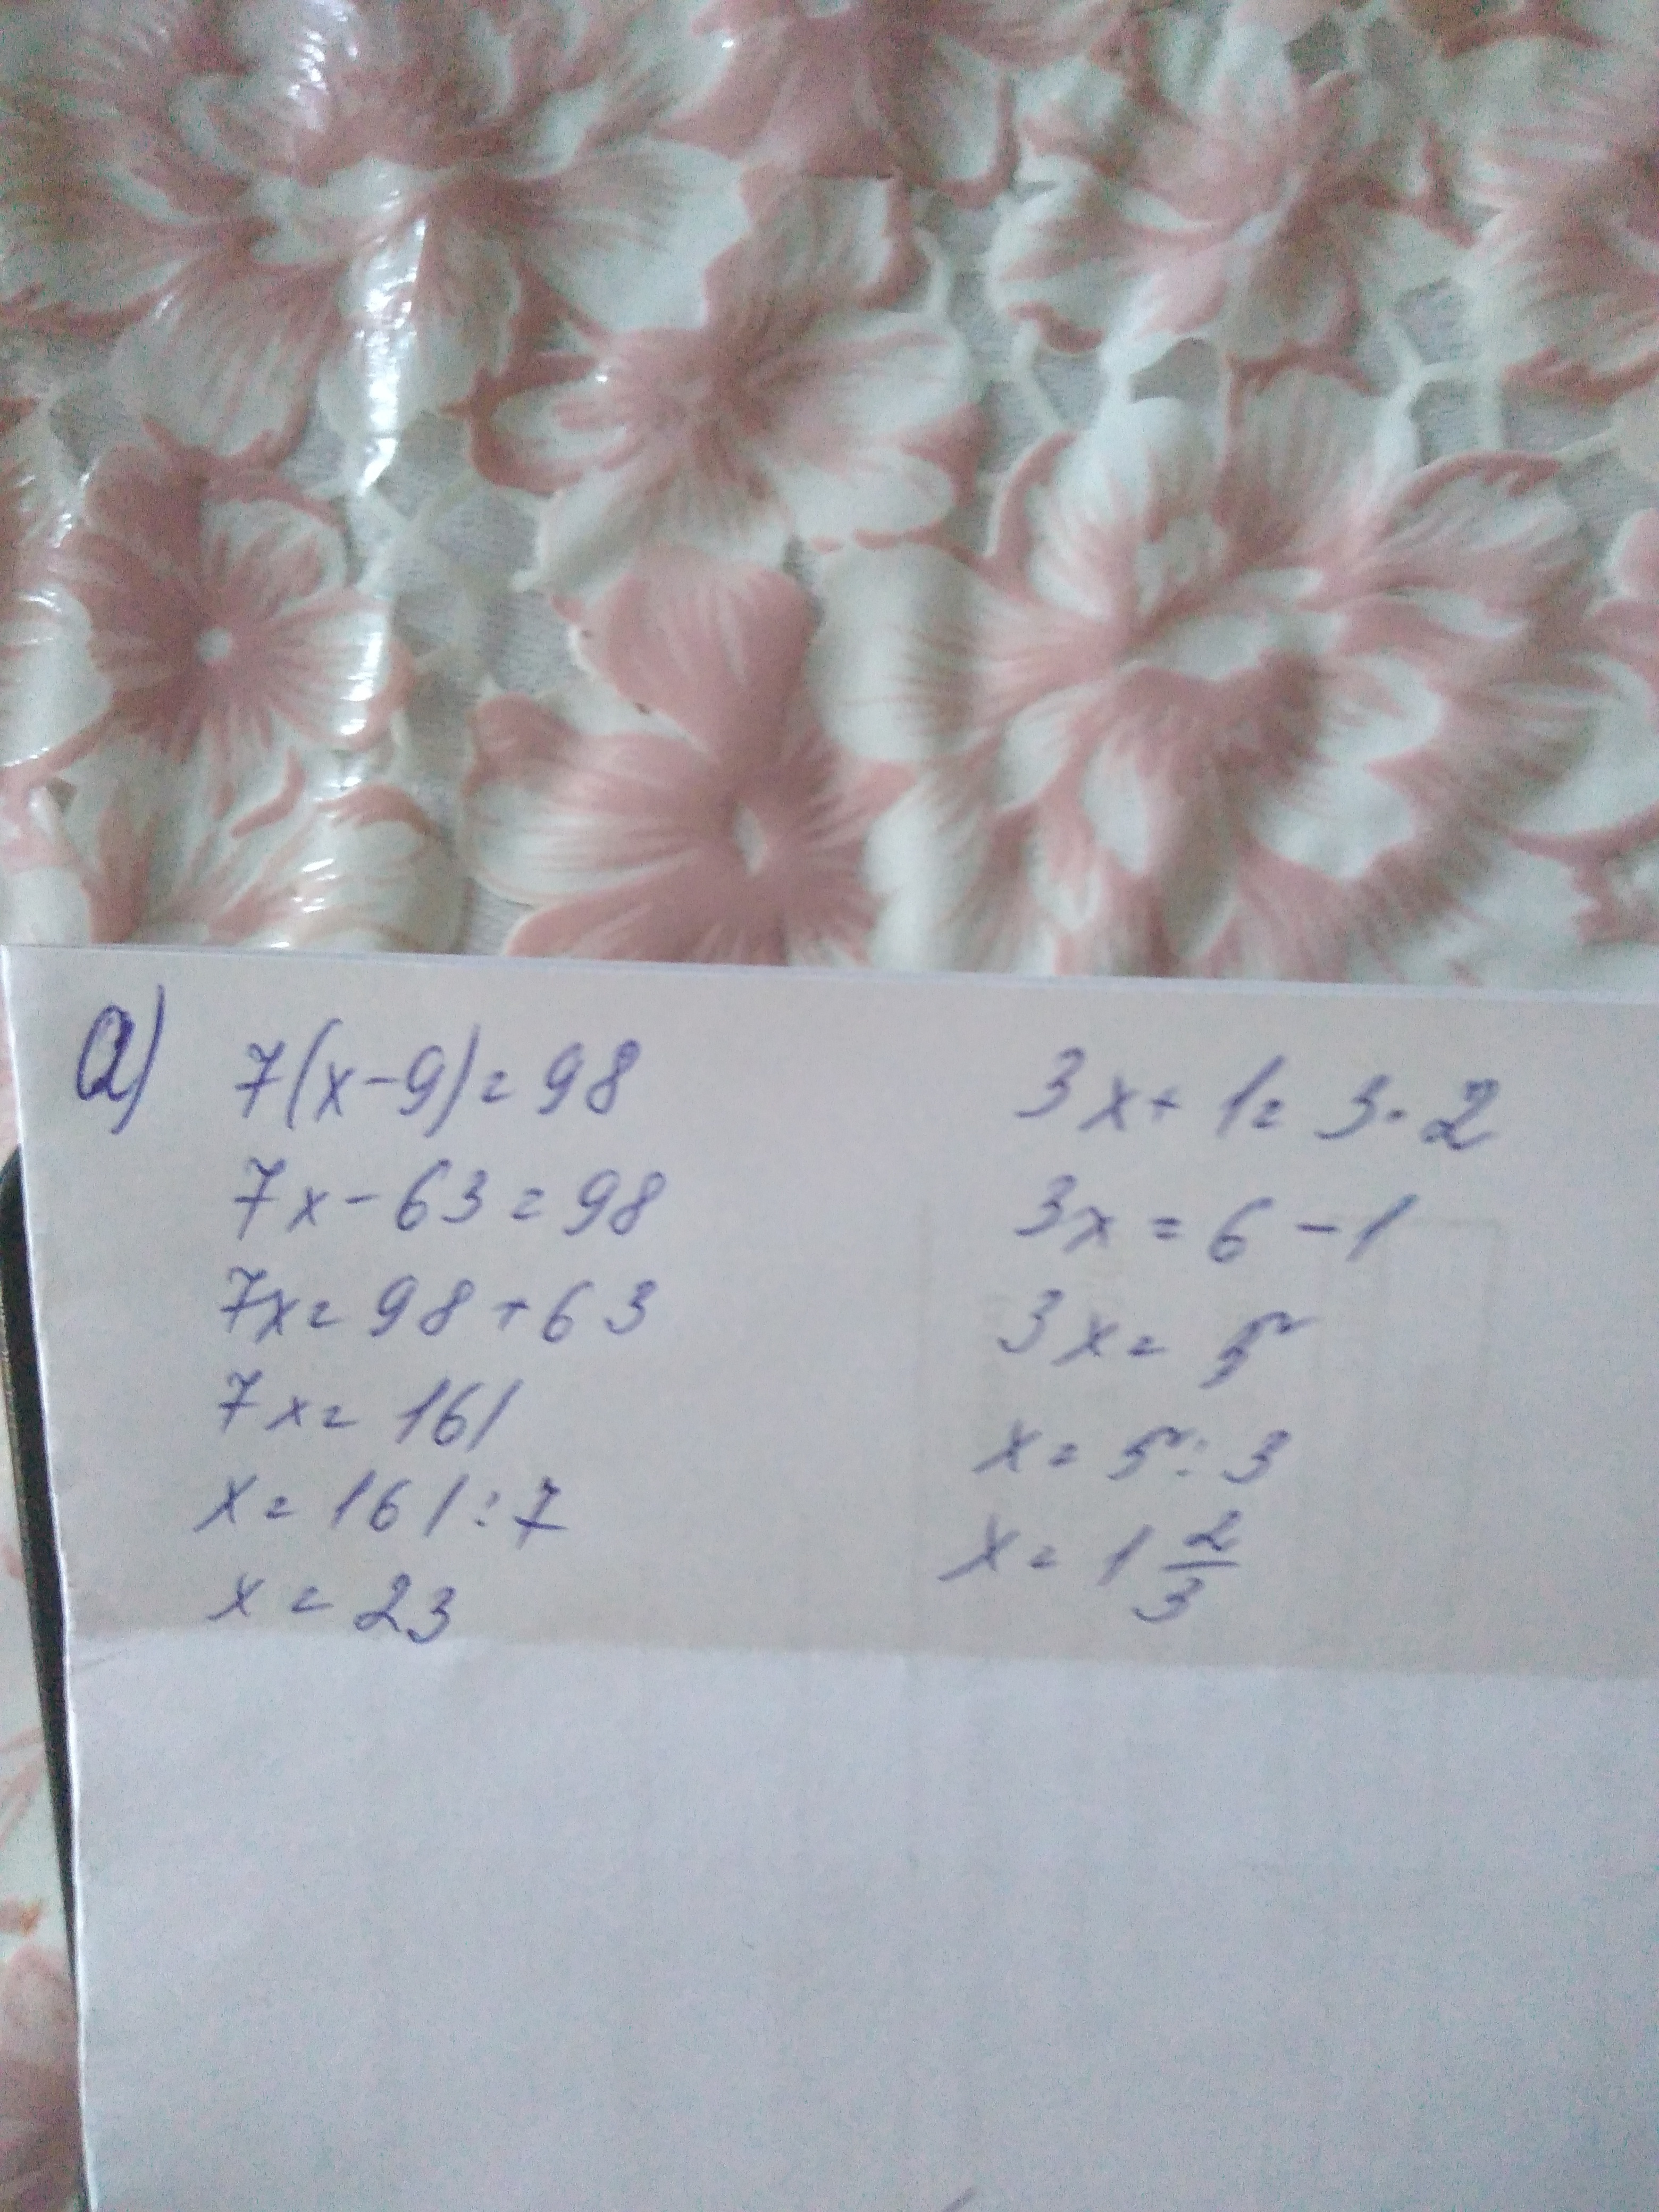 a) 7(x-9)=98
7x-63=98
7x=98+63
7x=161
x=161:7
x=23
3x+1=3·2
3x=6-1
3x=5
x=5:3
x=1 2/3